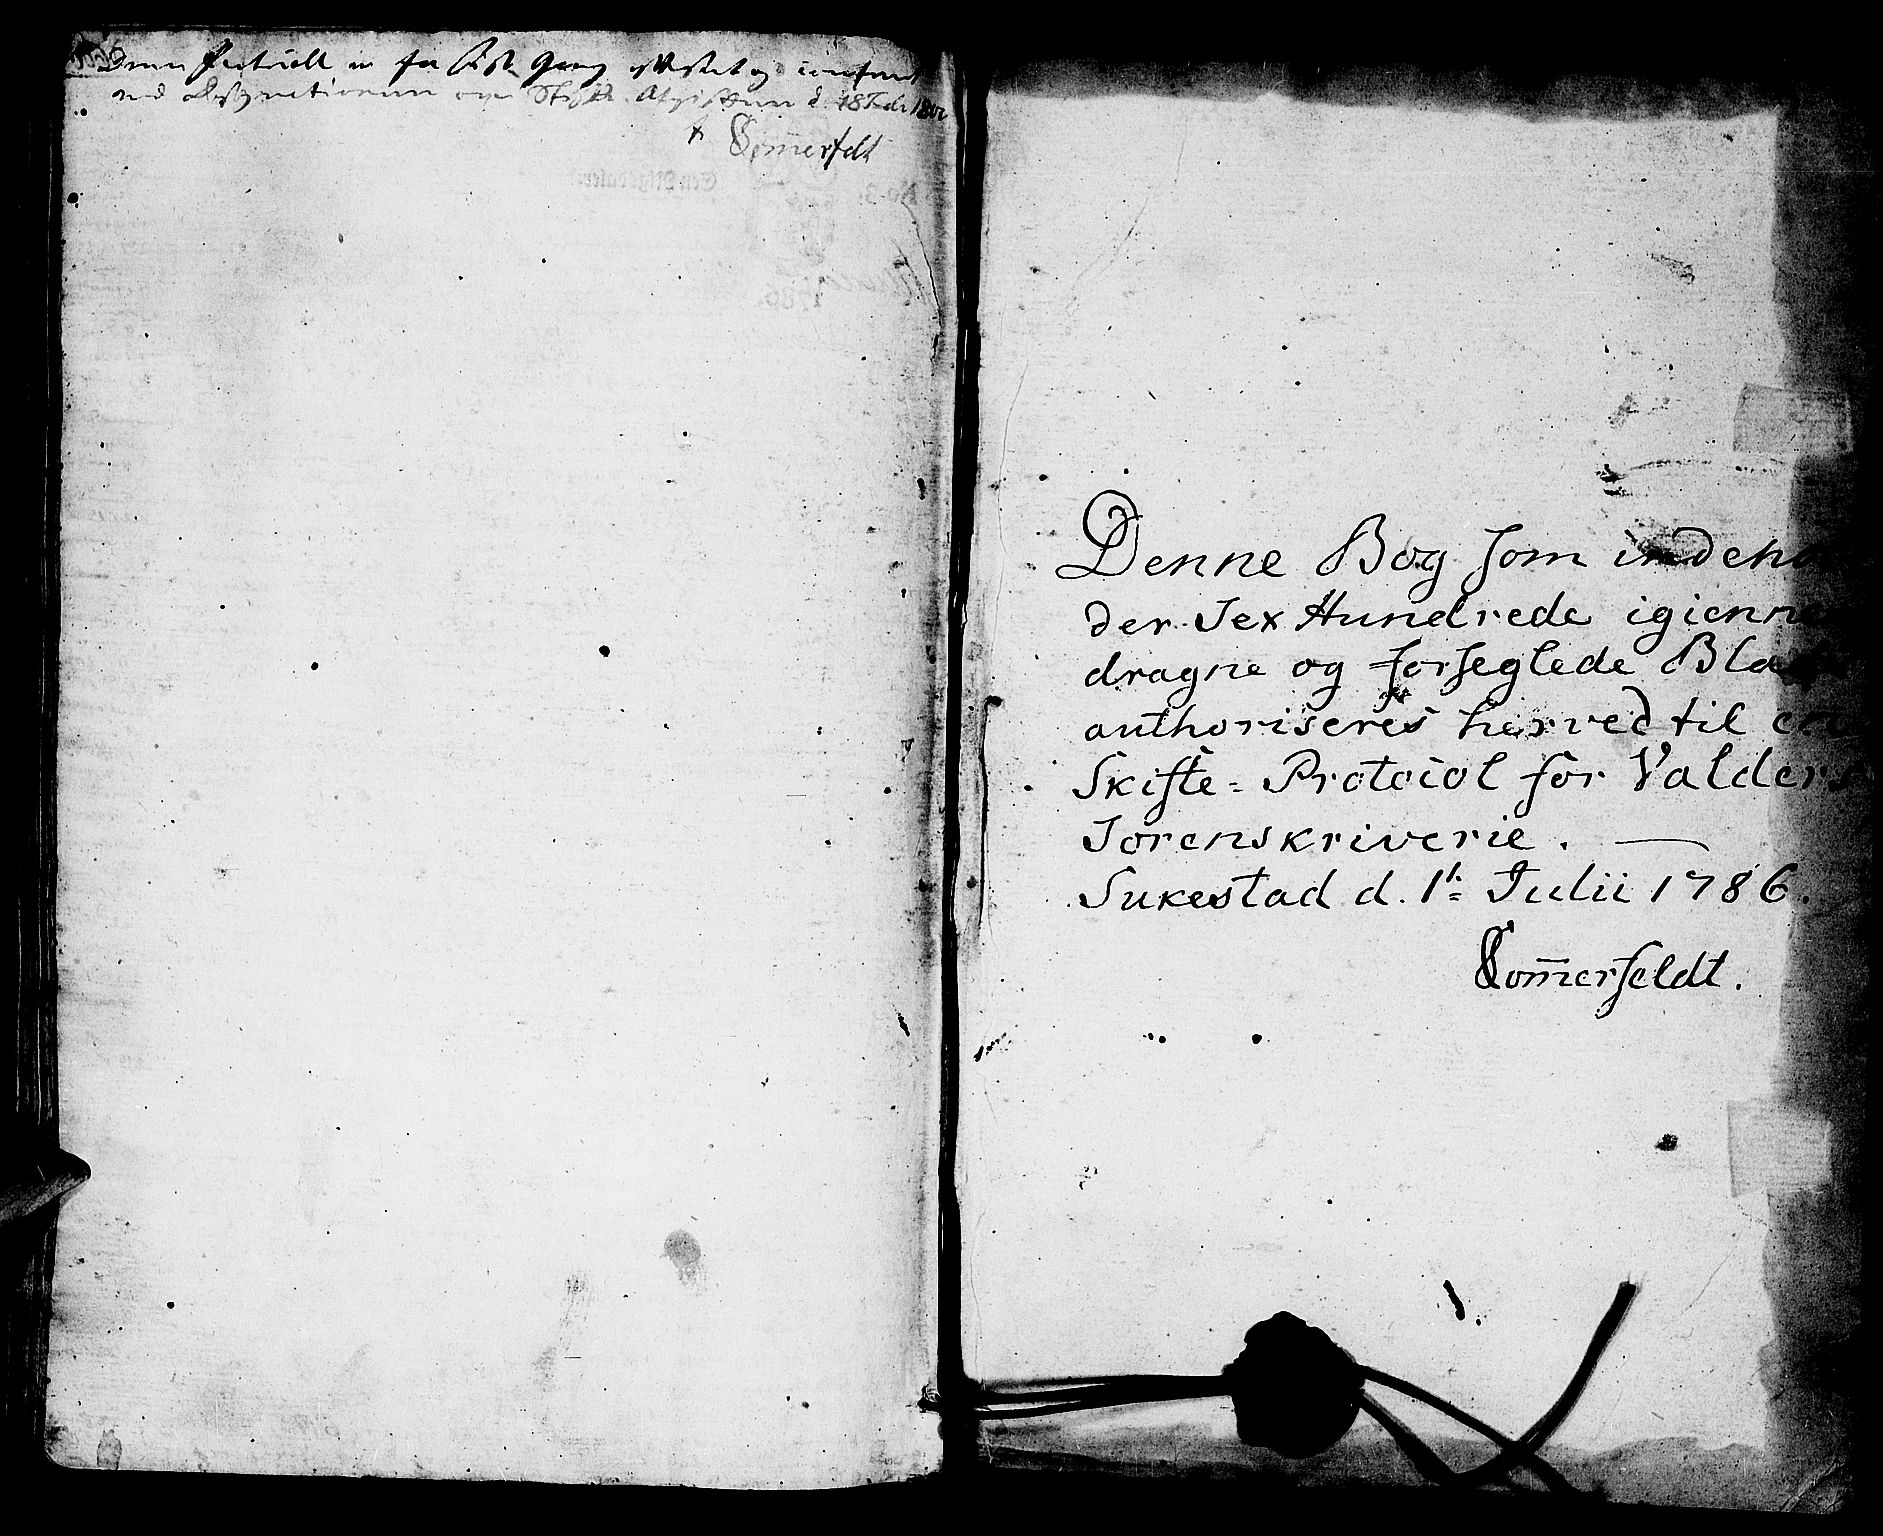 Denne Protocoll er for sidste Gang
d. 18 Febr 1800
Somerfeldt
Denne Bog som indehol
der Sex Hundrede igiennem
dragne og forseglede Blade
authoriseres herved til en
Skifte-Protocol for Valders
Sorenskriverie.
Sukestad d. 1t Julii 1786.
Som̄erfeldt.